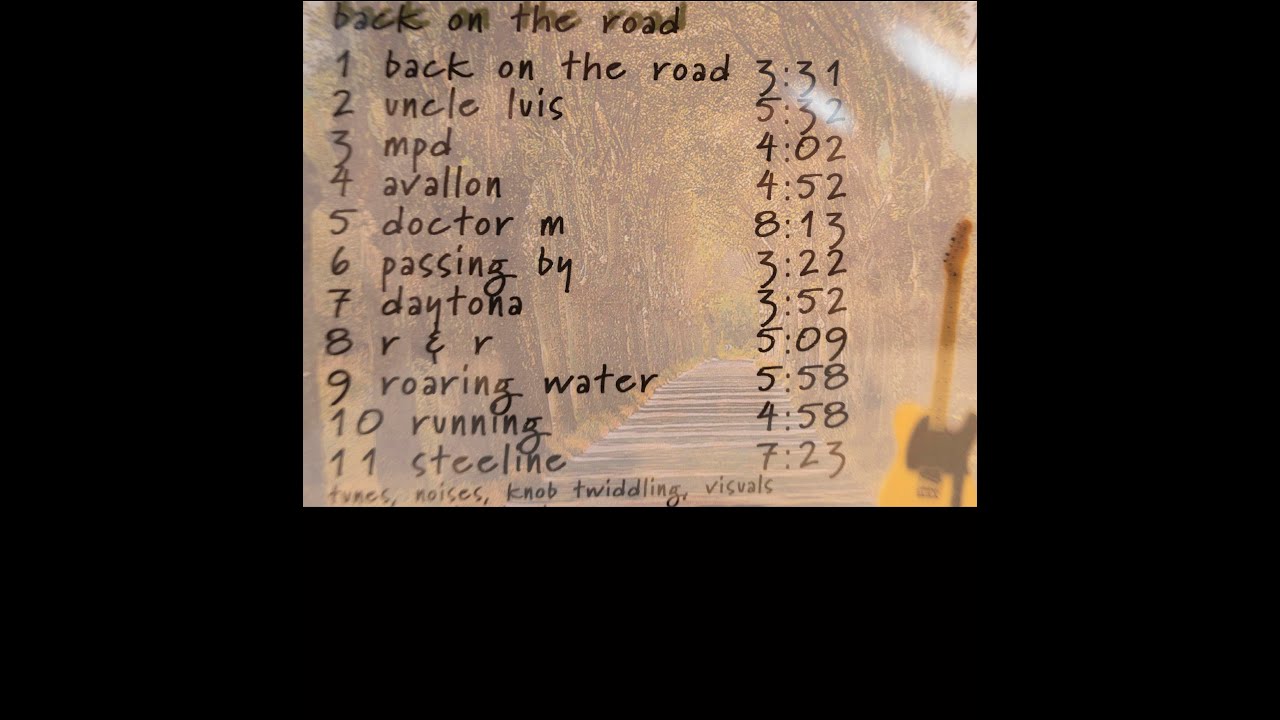 back on the road
1 back on the road 3:31
2 uncle luis 5:32
3 mpd 4:02
4 avallon 4:52
5 doctor m 8:13
6 passing by 3:22
7 daytona 3:52
8 r & r 5:09
9 roaring water 5:58
10 running 4:58
11 steeline 7:23
tunes, noises, knob twiddling, visuals